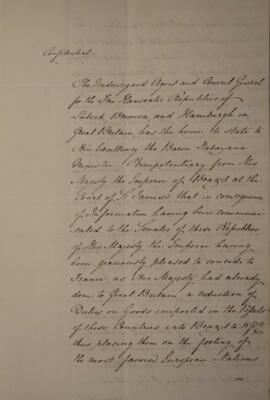 Confidential
The Undersigned Agent and Consul General
for the Free Hanseatic Republics of
Lubeck Bremen and Hamburgh in
Great Britain, has the honor to state to
His Excellency the Baron Itabayana
Minister Plenipotentiary from His
Majesty the Emperor of Brazil at the
Court of St James's that in consequence
of Information having been communi-
cated to the Senates of these Republics
of His Majesty the Emperor having
been graciously pleased to concede to
France as His Majesty had already
done to Great Britain a reduction of
Duties on Goods imported in the Vessels
of these Countries into Brazil to 15 P Ct
thus placing them on the footing of
the most favored European Nations